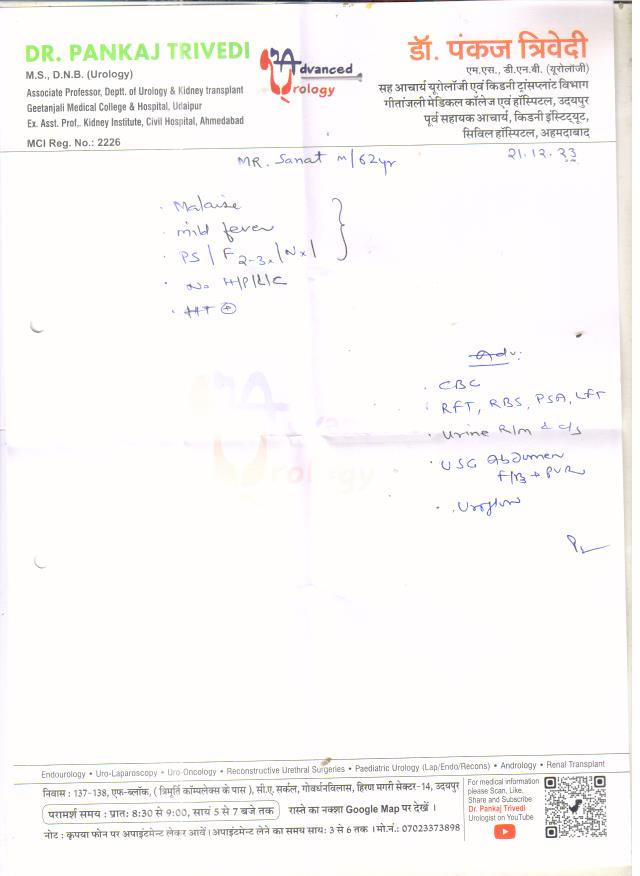 DR. PANKAJ TRIVEDI
M.S., D.N.B. (Urology)
Associate Professor, Deptt. of Urology & Kidney transplant
Geetanjali Medical College & Hospital, Udaipur
Ex. Asst. Prof,. Kidney Institute, Civil Hospital, Ahmedabad
MCI Reg. No.: 2226
Advanced
Urology
डॉ. पंकज त्रिवेदी
एम.एस., डी.एन.बी. (यूरोलॉजी)
सह आचार्य यूरोलॉजी एवं किडनी ट्रांसप्लांट विभाग
गीतांजली मेडिकल कॉलेज एवं हॉस्पिटल, उदयपुर
पूर्व सहायक आचार्य, किडनी इंस्टिट्यूट,
सिविल हॉस्पिटल, अहमदाबाद
MR. Sanat M/62yr
21.12.23
. Malaise
. mild fever
. PS | F2-3x | Nx |
. No H/P/L/C
. HT +
Adv:
. CBC
. RFT, RBS, PSA, LFT
. Urine R/m & c/s
. USG Abdomen
F/B + PVR
. Uroflow
Endourology • Uro-Laparoscopy • Uro-Oncology • Reconstructive Urethral Surgeries • Paediatric Urology (Lap/Endo/Recons) • Andrology • Renal Transplant
निवास : 137-138, एफ-ब्लॉक, ( त्रिमूर्ति कॉम्पलेक्स के पास ), सी.ए. सर्कल, गोवर्धनविलास, हिरण मगरी सेक्टर-14, उदयपुर
परामर्श समय : प्रातः 8:30 से 9:00, सायं 5 से 7 बजे तक रास्ते का नक्शा Google Map पर देखें ।
नोट : कृपया फोन पर अपाइंटमेन्ट लेकर आवें। अपाइंटमेन्ट लेने का समय सायः 3 से 6 तक । मो.नं.: 07023373898
For medical information
please Scan, Like,
Share and Subscribe
Dr. Pankaj Trivedi
Urologist on YouTube